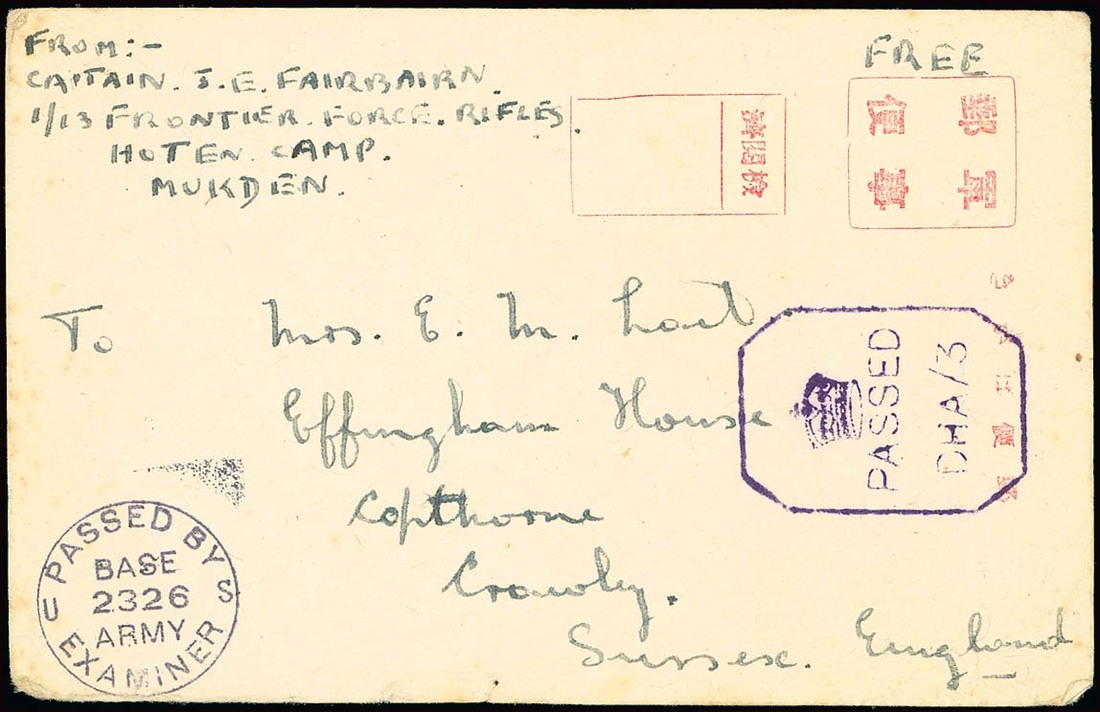 FROM:-
CAPTAIN. J. E. FAIRBAIRN.
1/13 FRONTIER. FORCE. RIFLES.
HOTEN. CAMP.
MUKDEN.
FREE
郵軍
便事
検閲済
To Mrs. E. M.
Effingham House
Copthorne
Crawley.
Sussex. England
PASSED
DHA/3
PASSED BY
BASE
2326
ARMY
EXAMINER
U S